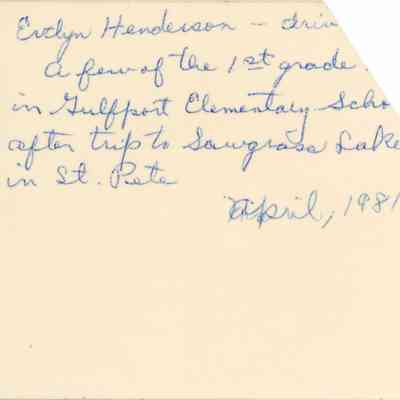 Evelyn Henderson - driv
A few of the 1st grade
in Gulfport Elementary Scho
after trip to Sawgrass Lake
in St. Pete
April, 1981